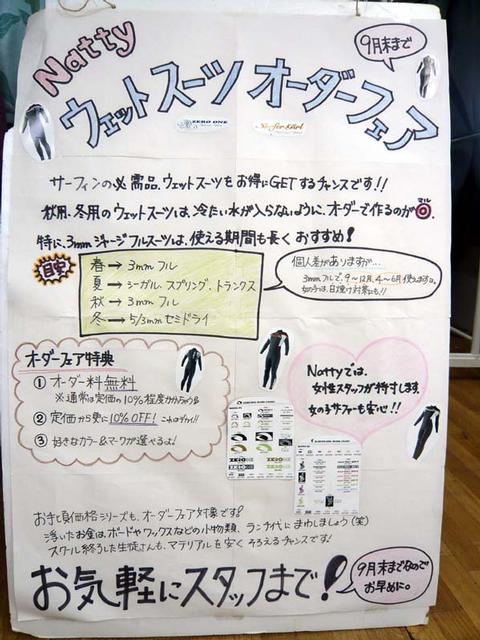 Natty
9月末まで
ウェットスーツ オーダーフェア
ZERO ONE
Surfer Girl
サーフィンの必需品、ウェットスーツをお得にGETするチャンスです!!
秋用、冬用のウェットスーツは、冷たい水が入らないように、オーダーで作るのが◎。
マル
特に、3mmジャージフルスーツは、使える期間も長くおすすめ!
目安
春→3mmフル
夏→シーガル、スプリング、トランクス
秋→3mmフル
冬→5/3mmセミドライ
個人差がありますが…
3mmフルで、9~12月、4~6月使えます。
女の子は、日焼け対策にも!!
オーダーフェア特典
① オーダー料無料
※通常は定価の10%程度かかっちゃう
② 定価から更に10%OFF! これはデカイ!!
③ 好きなカラー&マークが選べるよ!
Nattyでは、
女性スタッフが採寸します。
女の子サーファーも安心!!
ZERO
お手ごろ価格シリーズも、オーダーフェア対象です!
浮いたお金は、ボードやワックスなどの小物類、ランチ代にまわしましょう(笑)
スクール終了した生徒さんも、マテリアルを安くそろえるチャンスです!
お気軽にスタッフまで!
9月末までなので
お早めに。